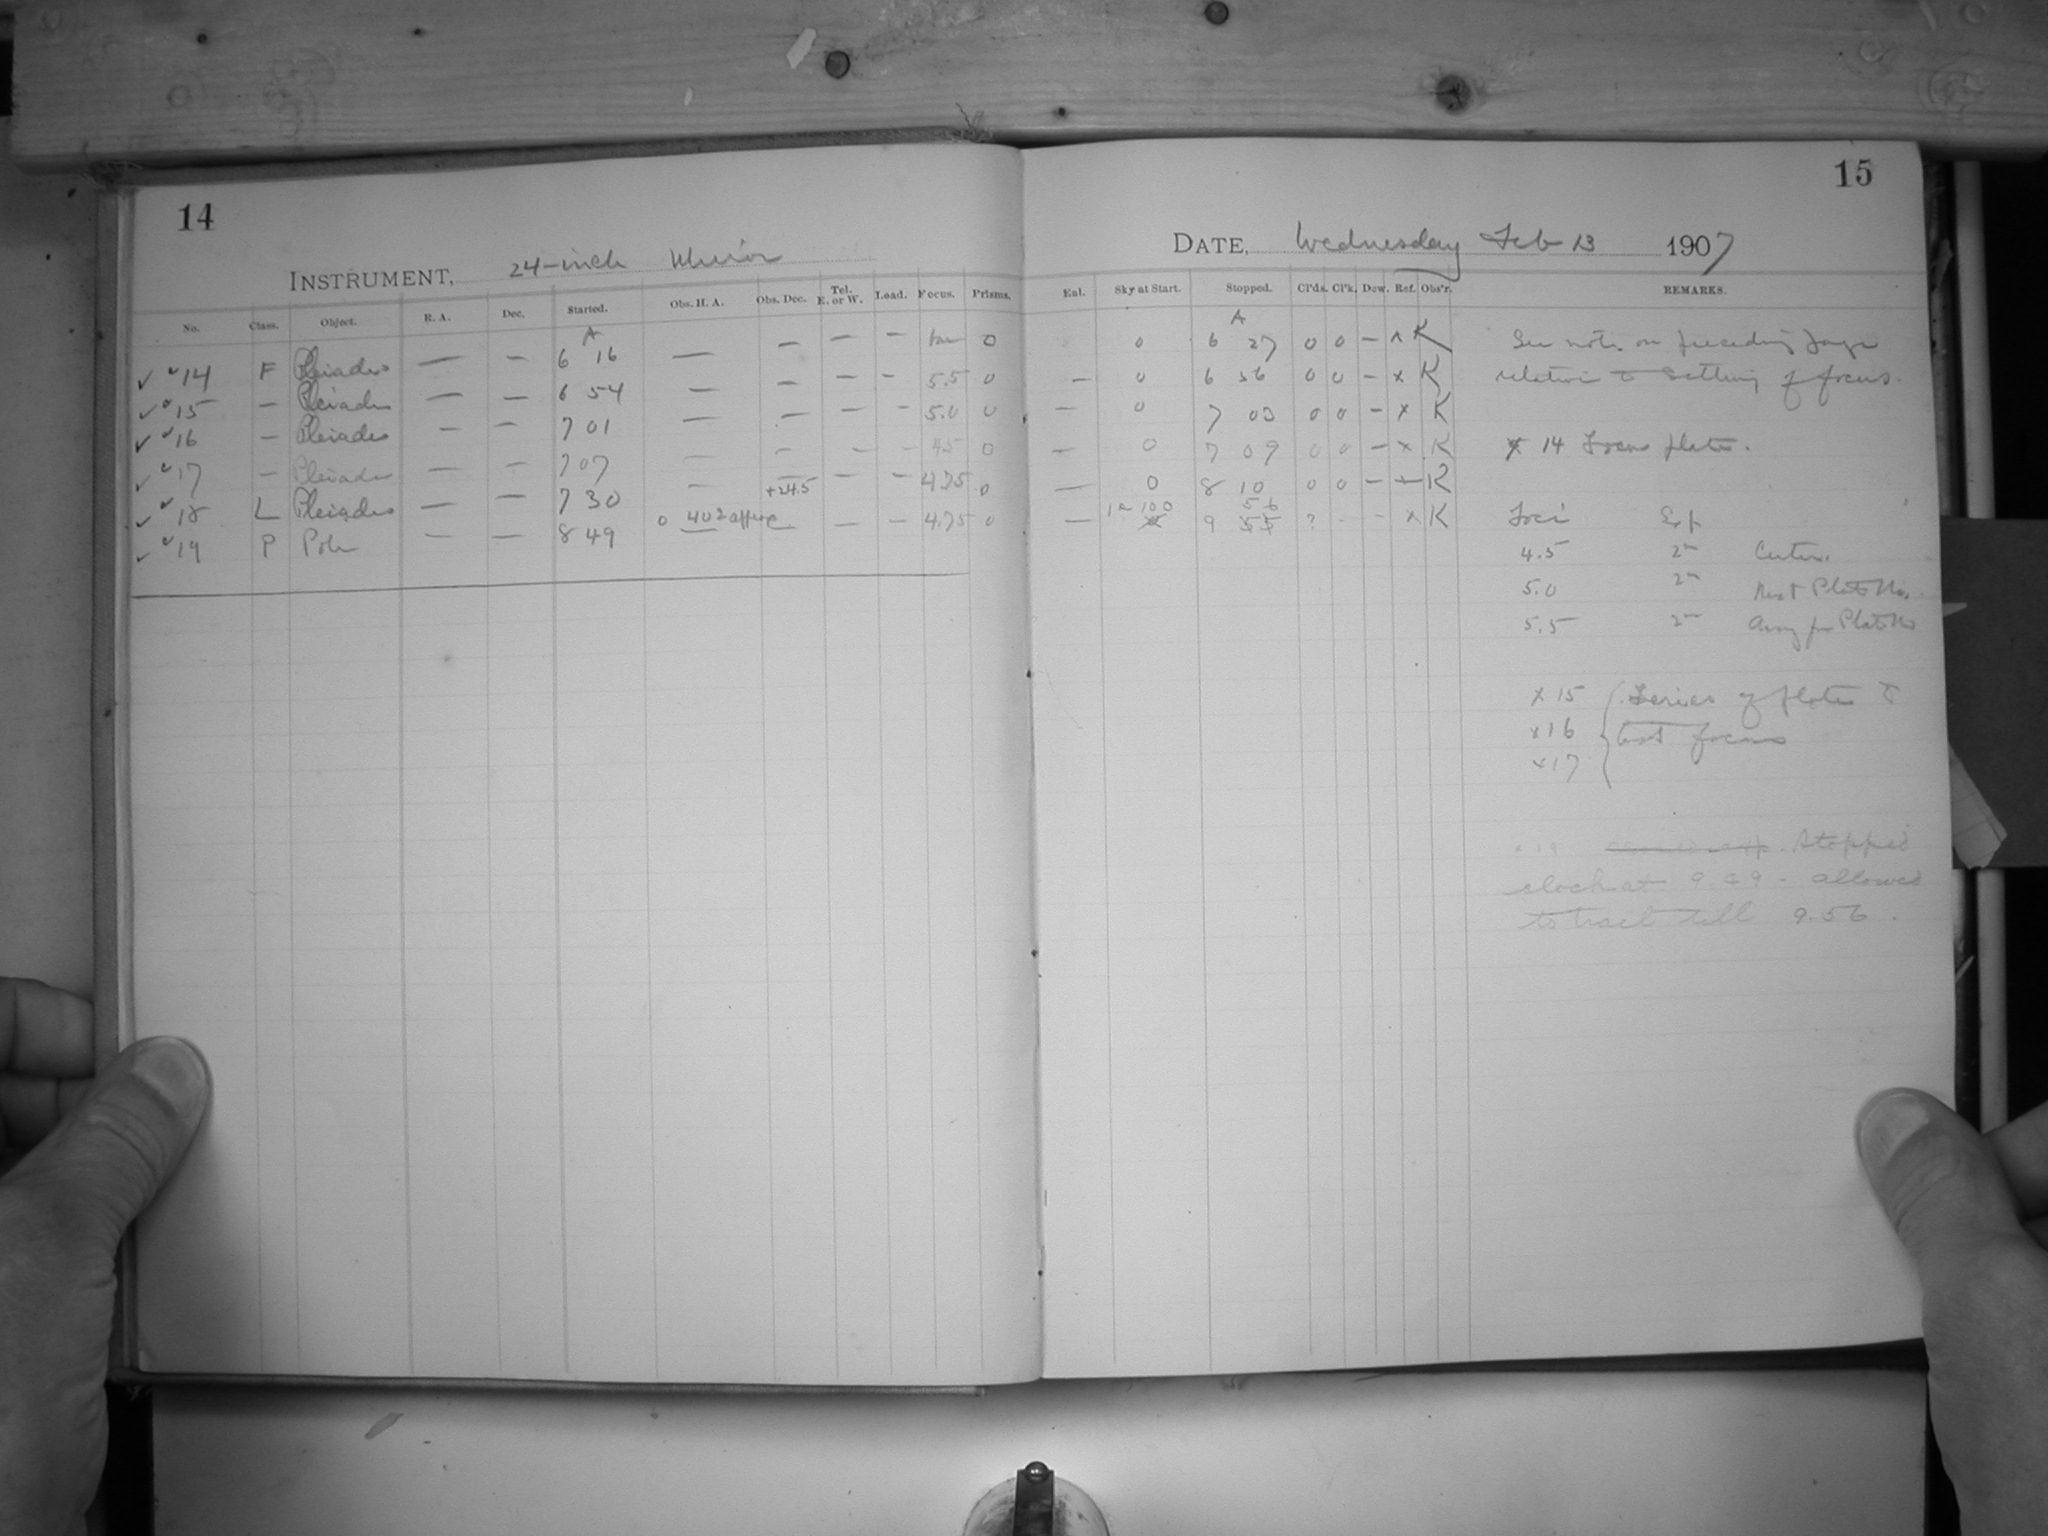 14
INSTRUMENT, 24-inch Mirror
No. Class. Object. R. A. Dec. Started. Obs. H. A. Obs. Dec. Tel. E. or W. Load. Focus. Prisms.
A
✓ ✓ 14 F Pleiades — — 6 16 — — — — 0
✓ ✓ 15 — Pleiades — — 6 54 — — — - 5.5 0
✓ ✓ 16 — Pleiades — — 7 01 — — — - 5.0 0
✓ ✓ 17 — Pleiades — — 7 07 — — — - 45 0
✓ ✓ 18 L Pleiades — — 7 30 — +24.5 — — 4.75 0
✓ ✓ 19 P Pole — — 8 49 0 402 — — 4.75 0
15
DATE, Wednesday Feb 13 1907
Sky at Start. Stopped. Cl'ds. Cl'k. Dew. Ref. Obs'r. REMARKS.
A
0 6 27 0 0 — x K See note on preceding page
— 0 6 56 0 0 - x K relative to setting of focus.
— 0 7 03 0 0 — x K
— 0 7 09 0 0 — x K x 14 Focus plate.
— 0 8 10 0 0 — — K
— 100 9 56 ? - - x K Foci Exp
4.5 2m Center.
5.0 2m Next Plate No.
5.5 2m Away fr Plate No
x 15 Series of plates to
x 16 test focus
x 17
x 19 Stopped
clock at 9.49 - allowed
to trail till 9.56.